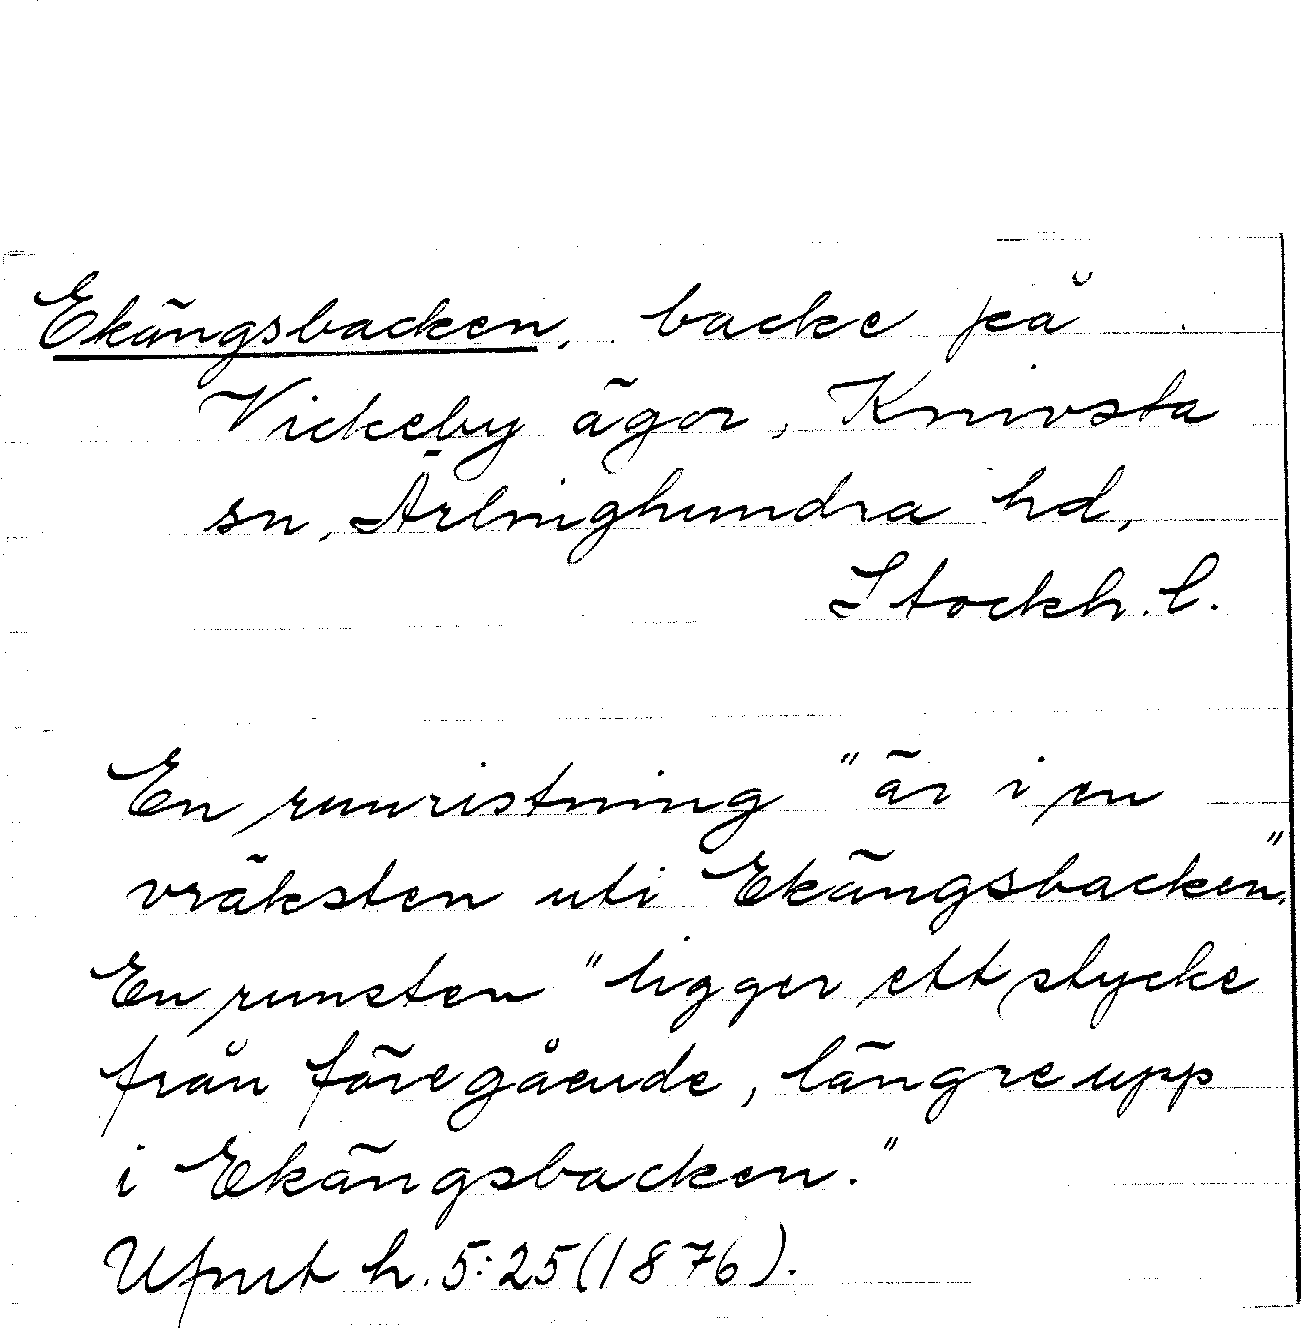 Ekängsbacken, backe på
Vickeby ägor, Knivsta
sn, Ärlinghundra hd,
Stockh. l.
En runristning "är i en
vräksten uti Ekängsbacken."
En runsten "ligger ett stycke
från föregående, längre upp
i Ekängsbacken."
Ufmt h. 5:25 (1876).